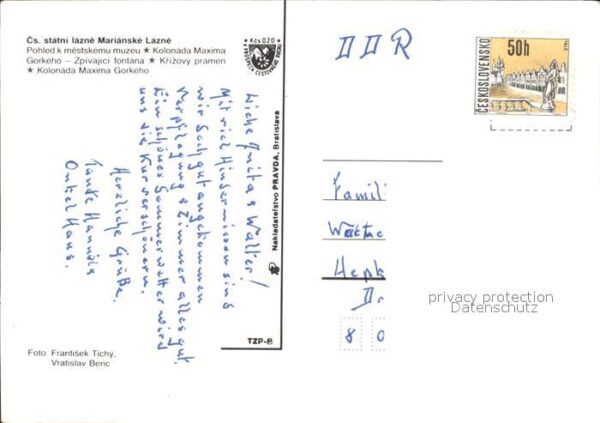 Čs. státní lázně Mariánské Lázně
Pohled k městskému muzeu ★ Kolonáda Maxima
Gorkého – Zpívající fontána ★ Křížový pramen
★ Kolonáda Maxima Gorkého
Kčs 0,20
Liebe Anita & Walter!
Mit viel Hindernissen sind
wir sehr gut angekommen
Verpflegung & Zimmer alles gut.
Ein schönes Sommerwetter wird
uns die Kur verschönern.
Herzliche Grüße.
Tante
Onkel Hans.
Nakladatelství PRAVDA, Bratislava
TZP-B
Foto František Tichý,
Vratislav Benc
DDR
ČESKOSLOVENSKO
50h
TELČ
Famili
8 0
privacy protection
Datenschutz